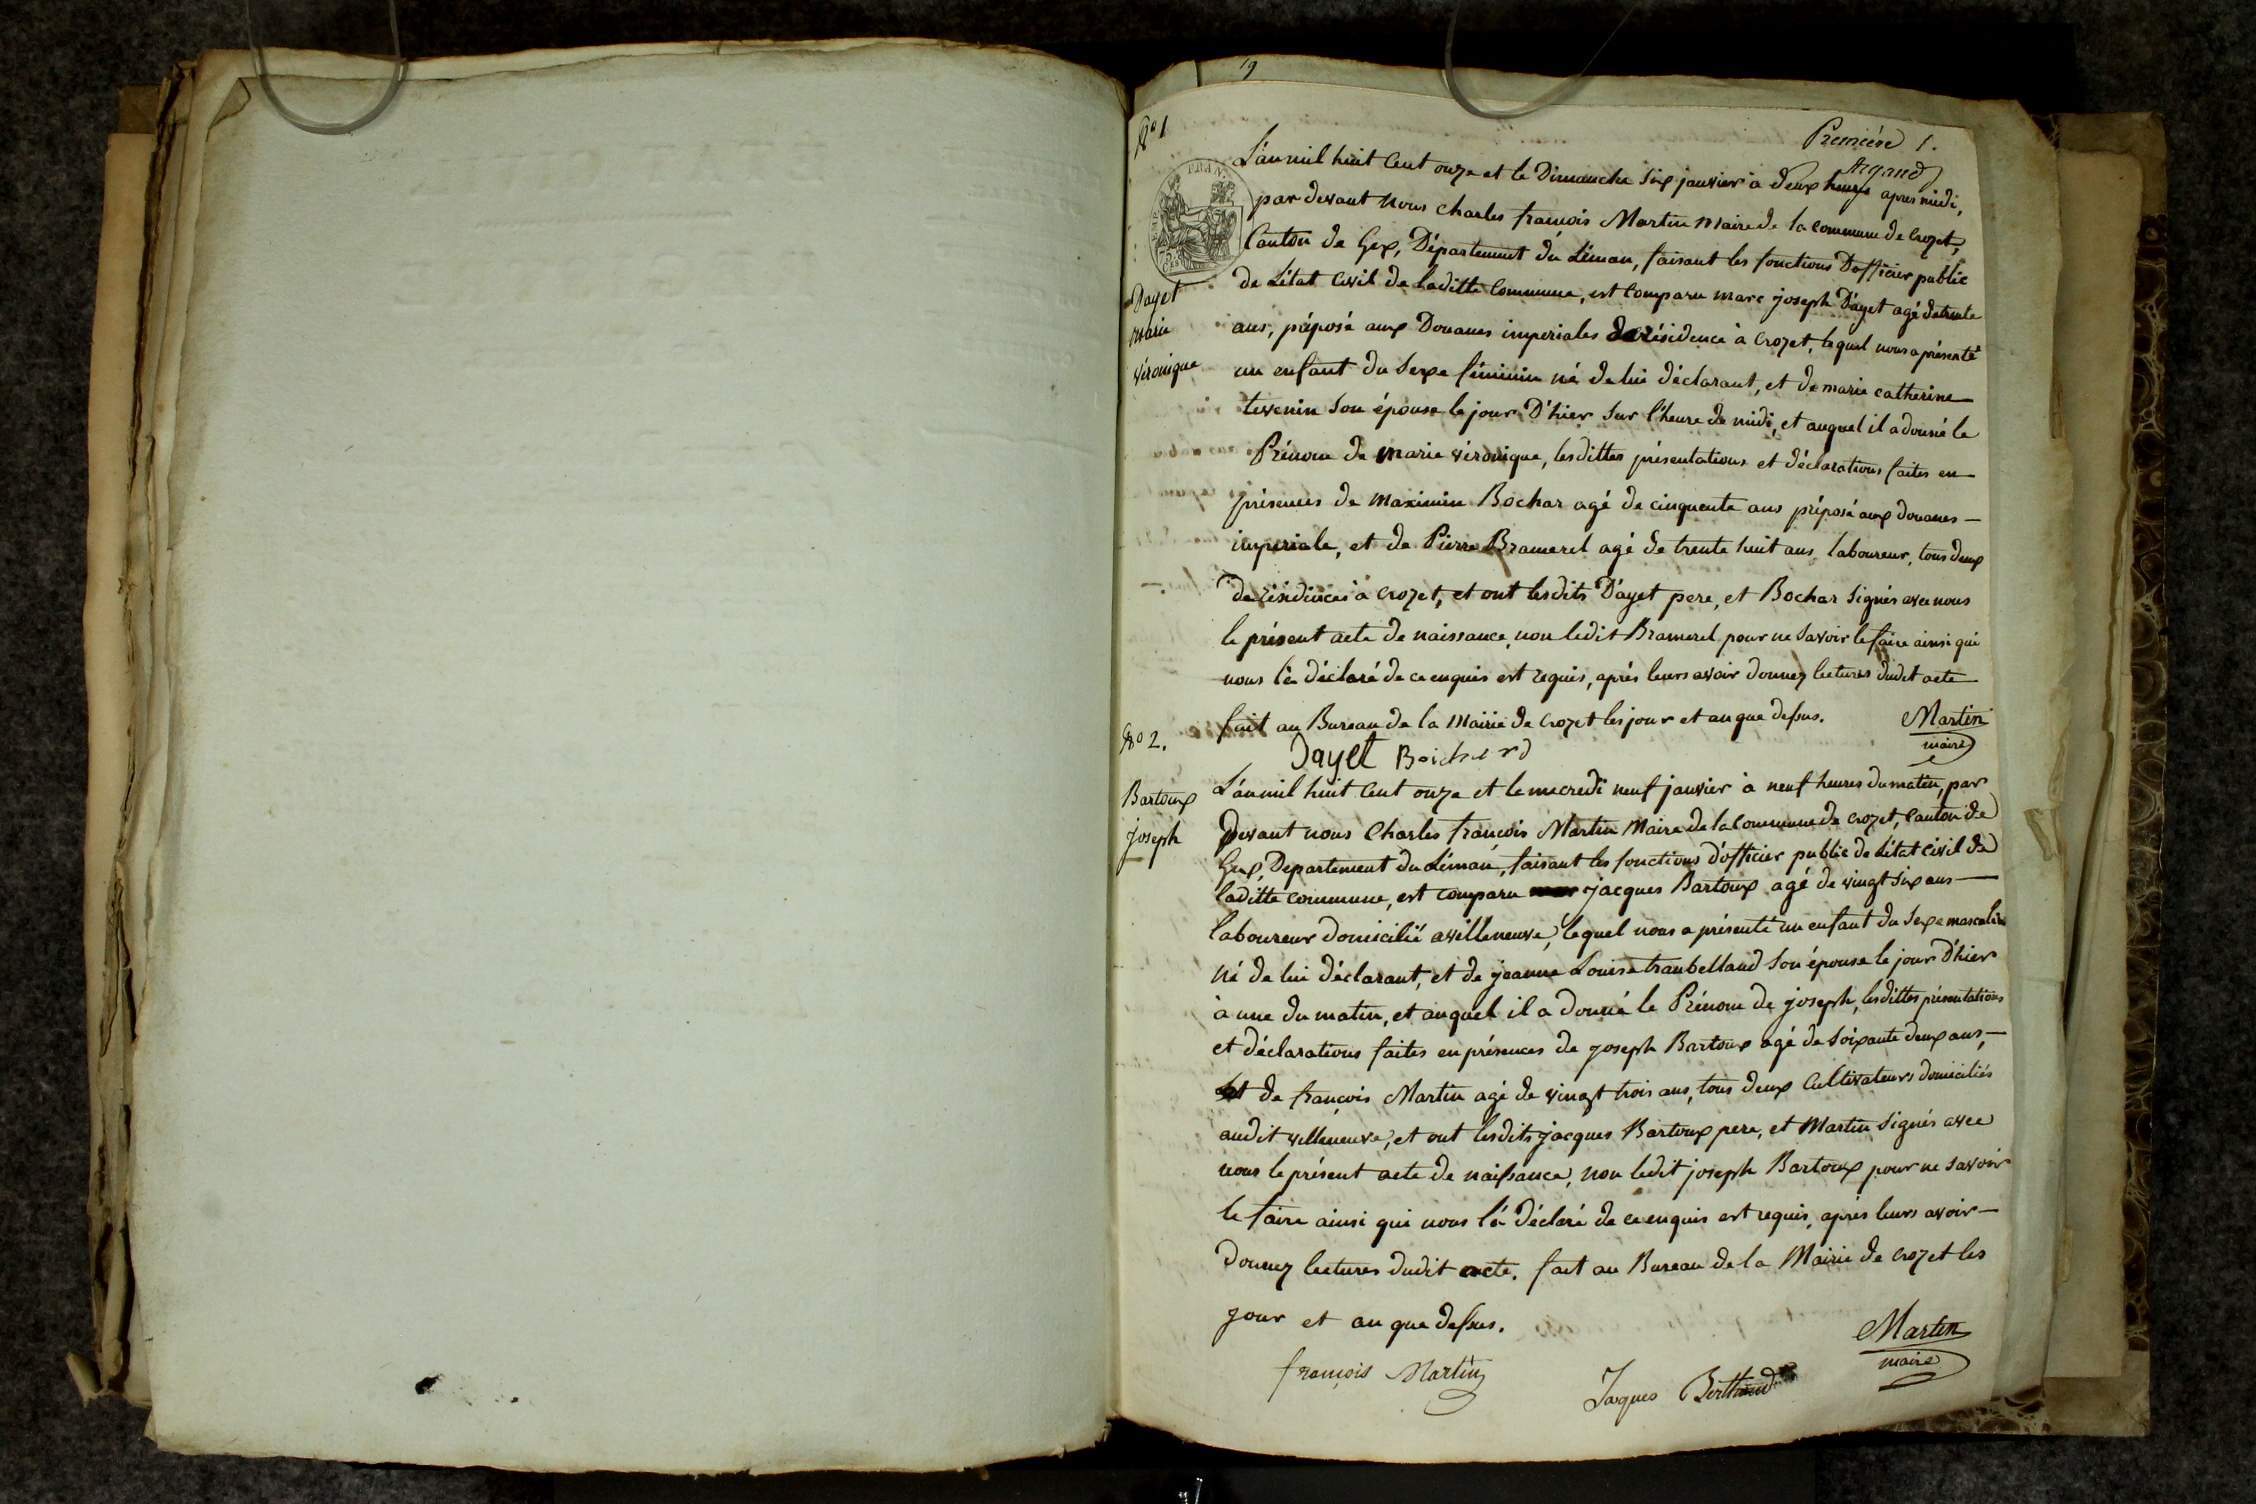 19
Premiere 1.
Argand
No 1
FRAN.
75.
CES
Dayet
marie
véronique
L'an mil huit Cent onze et le Dimanche Six janvier à deux heures apres midi,
par devant nous charles françois Martin Maire de la commune de Crozet,
Canton de Gex, Département du Léman, faisant les fonctions D'officier public
de L'état Civil de laditte Commune, est Comparu marc joseph Dayet agé de trente
ans, préposé aux Douanes imperiales de résidence à Crozet, lequel nous a présenté
un enfant du Sexe féminin né de lui déclarant, et de marie catherine
tevenin Son épouse le jour D'hier Sur l'heure de midi, et auquel il a donné le
Prénom de Marie véronique, lesdittes présentations et déclarations faites en
présences de Maximin Bochar agé de cinquente ans préposé aux douanes
imperiale, et de Pierre Bramerel agé de trente huit ans, laboureur, tous deux
de résidences à Crozet, et ont lesdits Dayet pere, et Bochar Signés avec nous
le présent acte de naissance, non ledit Bramerel pour ne Savoir le faire ainsi qui
nous l'a déclaré de ce enquis est requis, aprés leurs avoir donnez lectures dudit acte
fait au Bureau de la Mairie de Crozet les jour et an que dessus.
Martin
maire
Dayet Boichard
No 2.
Bartoux
joseph
L'an mil huit Cent onze et le mecredi neuf janvier à neuf heures du matin, par
devant nous Charles françois Martin Maire de la Commune de Crozet, Canton de
Gex, Departement du Léman, faisant les fonctions d'officier public de L'état Civil de
laditte commune, est comparu jacques Bartoux agé de vingt Six ans
laboureur domicilié a villeneuve, lequel nous a présenté un enfant du Sexe masculin
né de lui déclarant, et de jeanne Louise Son épouse le jour D'hier
à une du matin, et auquel il a donné le Prénom de joseph, lesdittes présentations
et déclarations faites en présences de joseph Bartoux agé de Soixante deux ans,
et de françois Martin agé de vingt trois ans, tous deux Cultivateurs domiciliés
audit villeneuve, et ont lesdits jacques Bartoux pere, et Martin Signés avec
nous le présent acte de naissance, non ledit joseph Bartoux pour ne Savoir
le faire ainsi qui nous l'a déclaré de ce enquis est requis, aprés leurs avoir
donnez lectures dudit acte. fait au Bureau de la Mairie de Crozet les
jour et an que dessus.
Martin
maire
françois Martin
Jaques